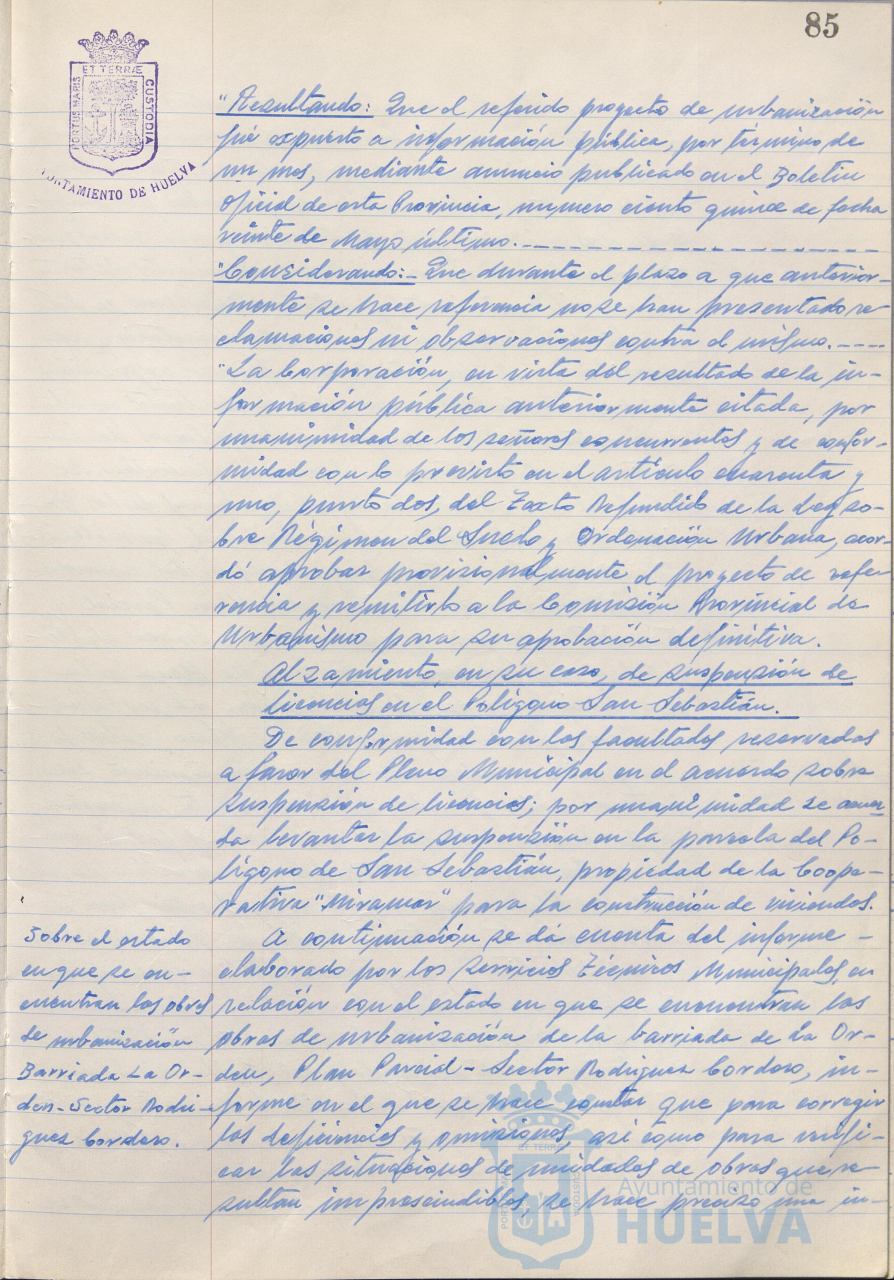 85
ET TERRÆ
PORTUS MARIS
CUSTODIA
AYUNTAMIENTO DE HUELVA
"Resultando: Que el referido proyecto de urbanización
fué expuesto a información pública, por término de
un mes, mediante anuncio publicado en el Boletín
Oficial de esta Provincia, numero ciento quince de fecha
veinte de Mayo último.
"Considerando:- Que durante el plazo a que anterior-
mente se hace referencia no se han presentado re-
clamaciones ni observaciones contra el mismo.
"La Corporación, en vista del resultado de la in-
formación pública anteriormente citada, por
unanimidad de los señores concurrentes y de confor-
midad con lo previsto en el artículo cuarenta y
uno, punto dos, del Texto Refundido de la Ley so-
bre Régimen del Suelo y Ordenación Urbana, acor-
dó aprobar provisionalmente el proyecto de refe-
rencia y remitirlo a la Comisión Provincial de
Urbanismo para su aprobación definitiva.
Alzamiento, en su caso, de suspensión de
licencias en el Polígono San Sebastián.
De conformidad con las facultades reservadas
a favor del Pleno Municipal en el acuerdo sobre
suspensión de licencias; por unanimidad se acuer-
da levantar la suspensión en la parcela del Po-
lígono de San Sebastián, propiedad de la Coope-
rativa "Miramar" para la construcción de viviendas.
Sobre el estado
en que se en-
cuentran las obras
de urbanización
Barriada La Or-
den-Sector Rodri-
guez Cordoso.
A continuación se dá cuenta del informe -
elaborado por los Servicios Técnicos Municipales, en
relación con el estado en que se encuentran las
obras de urbanización de la barriada de La Or-
den, Plan Parcial - Sector Rodriguez Cordoso, in-
forme en el que se hace constar que para corregir
las deficiencias y omisiones, así como para verifi-
car las situaciones de unidades de obras que re-
sultan imprescindibles, se hace preciso una in-
ET TERRÆ
Ayuntamiento de
HUELVA